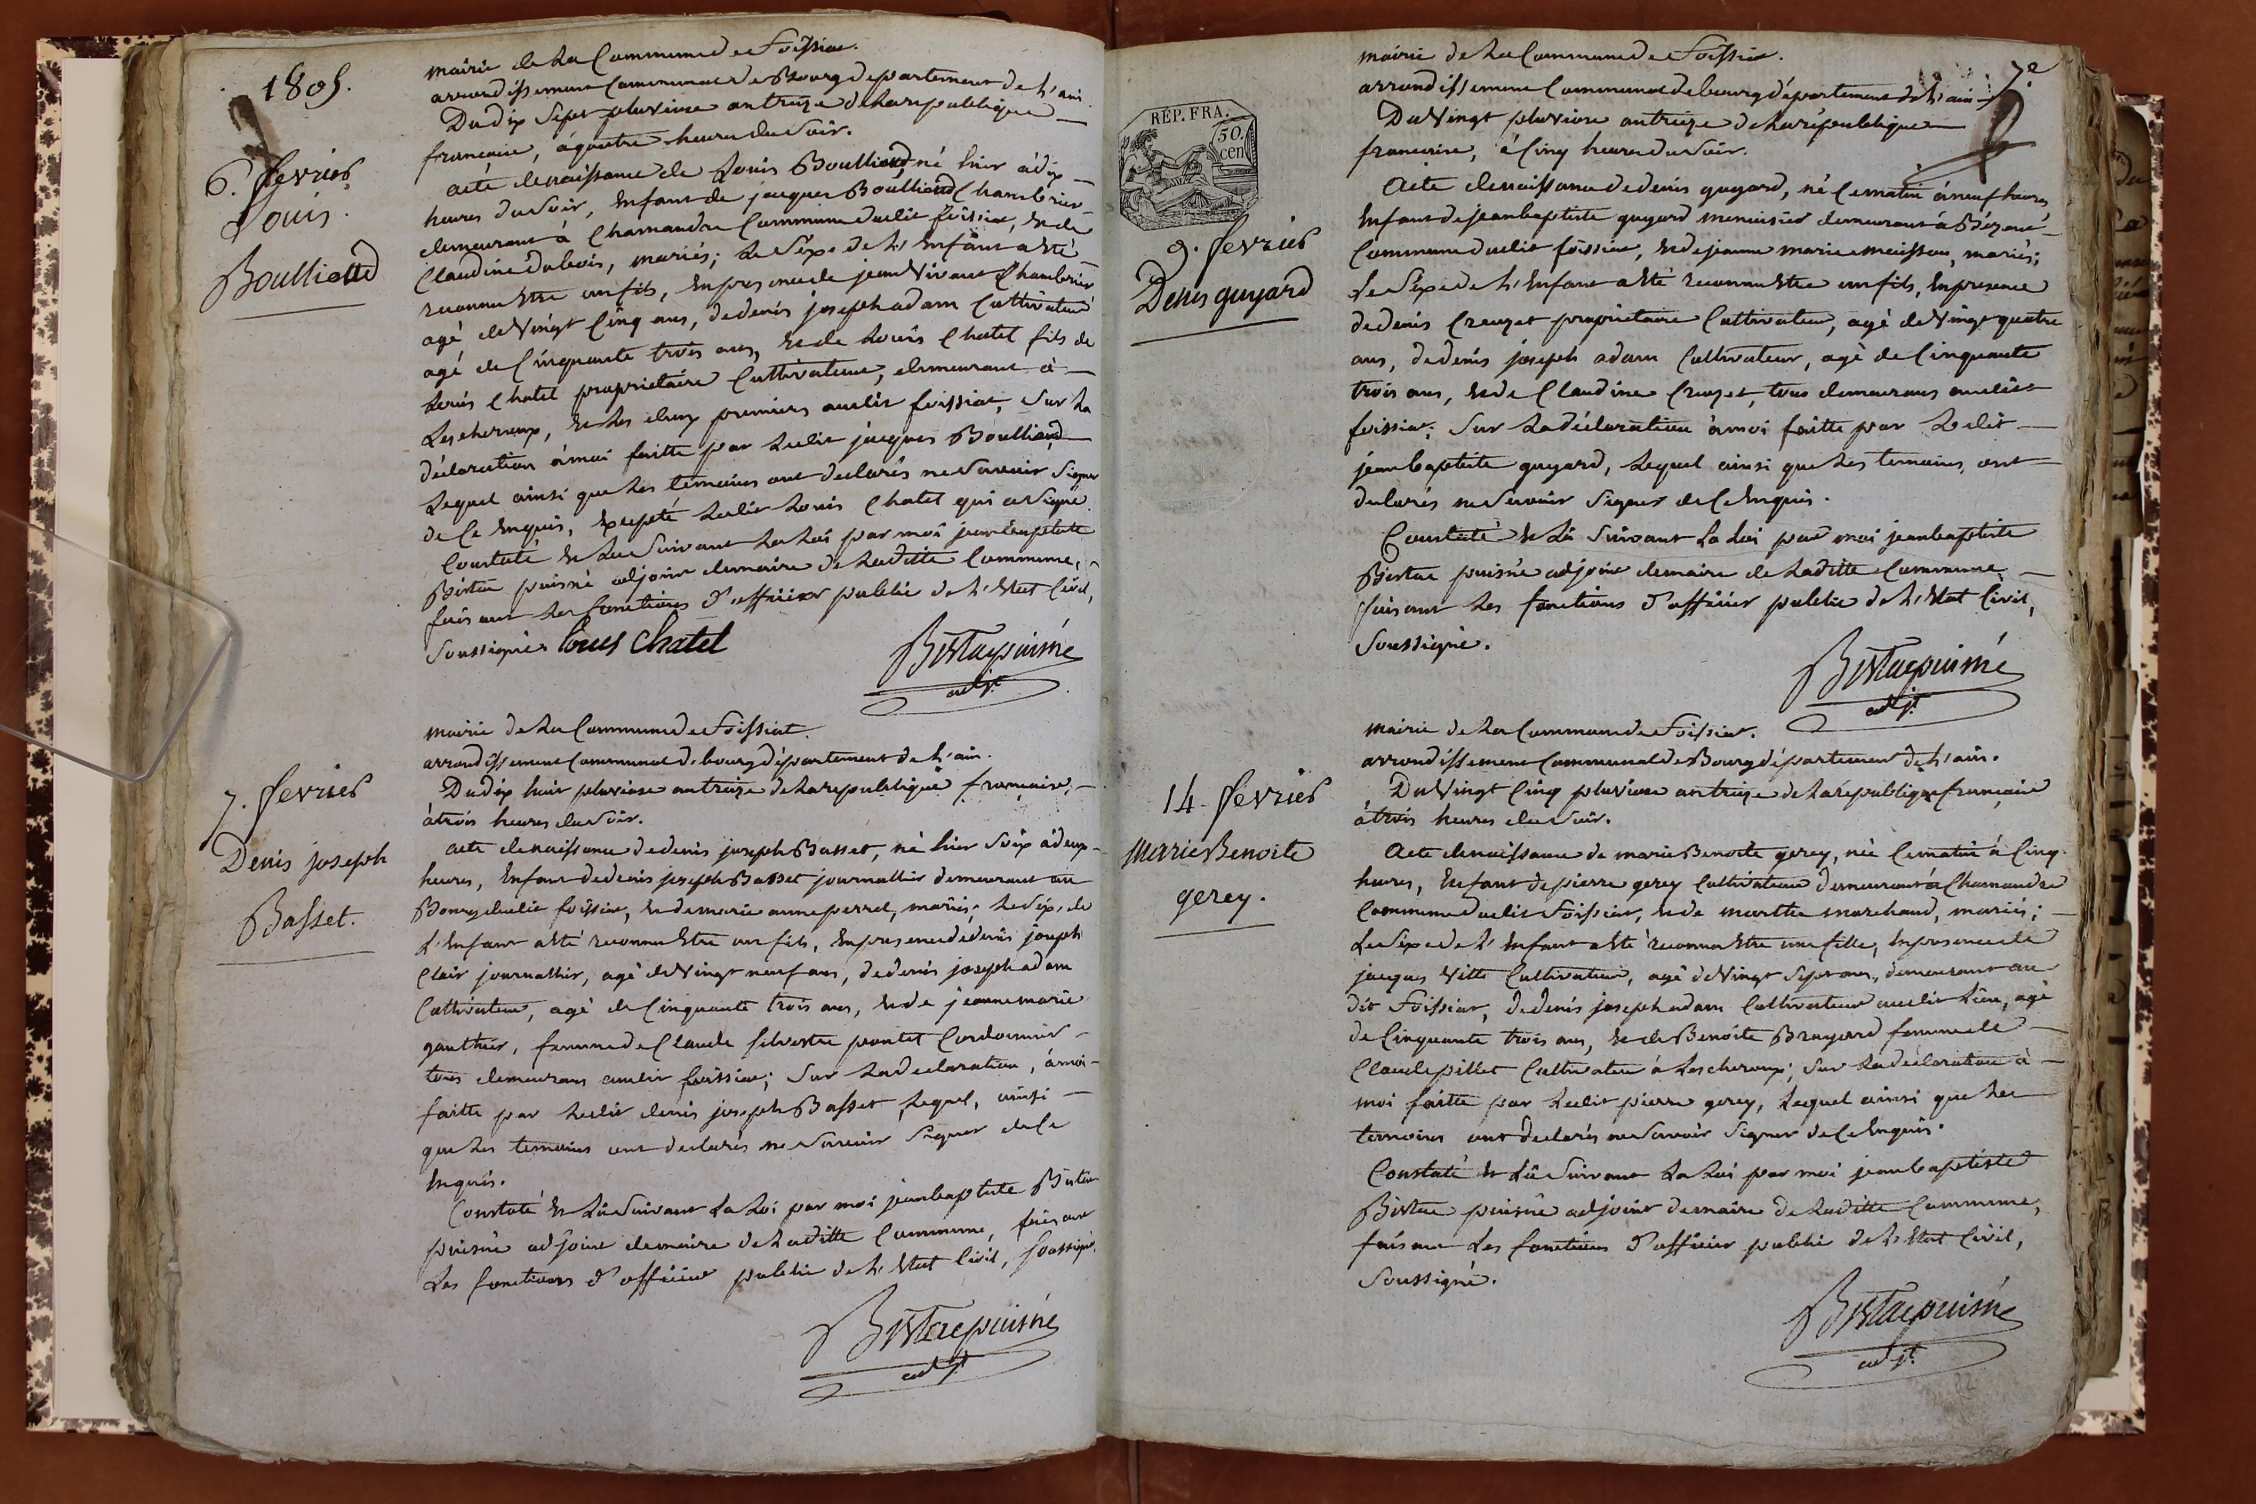 1805.
6. fevrier
Louis
Boullioud
mairie de La Commune de Foissiat.
arrondissement Communal de Bourg departement de L'ain.
Du dix Sept pluviose an treize de La republique
francaise, à quatre heures du Soir.
acte de naissance de Louis Boullioud, né hier à dix
heures du Soir, Enfant de jacques Boullioud Chambrier
demeurant à Chamandre Commune dudit foissiat, Et de
Claudine dubois, mariés; Le Sexe de L'Enfant a Eté
reconnu Etre un fils, En presence de jean Vivant Chambrier
agé de Vingt Cinq ans, de denis joseph adam Cultivateur
agé de Cinquante trois ans, Et de Louis Chatel fils de
Louis Chatel proprietaire Cultivateur, demeurant à
Lescheroux, Et Les deux premiers audit foissiat, Sur La
déclaration à moi faitte par Ledit jacques Boullioud
Lequel ainsi que Les temoins ont declarés ne Savoir Signer
de Ce Enquis, Excepté Ledit Louis Chatel qui a Signé.
Constaté Et Lu Suivant La Loi par moi jean baptiste
Bistac puisné adjoint demaire de Laditte Commune,
faisant Les fonctions d'officier public de L'Etat Civil,
Soussigné. louis Chatel
Bistac puisné
adjt.
7. fevrier
Denis joseph
Basset.
mairie de La Commune de Foissiat.
arrondissement Communal de bourg département de L'ain.
Du dix huit pluviose an treize de La republique francaise,
à trois heures du Soir.
acte de naissance de denis joseph Basset, né hier Soir à deux
heures, Enfant de denis joseph Basset journallier demeurant au
Bourg dudit foissiat, Et de marie anne perret, mariés; Le Sexe de
L'Enfant a Eté reconnu Etre un fils, En presence de denis joseph
Clair journallier, agé de Vingt neuf ans, de denis joseph adam
Cultivateur, agé de Cinquante trois ans, Et de jeanne marie
gauthier, femme de Claude Silvestre pontet Cordonnier
tous demeurans audit foissiat; Sur La declaration, à moi
faitte par Ledit denis joseph Basset Lequel, ainsi
que Les temoins ont declarés ne Savoir Signer de Ce
Enquis.
Constaté Et Lu Suivant La Loi par moi jean baptiste Bistac
puisné adjoint demaire de Laditte Commune, faisant
Les fonctions d'officier public de L'Etat Civil, soussigné.
Bistac puisné
adjt.
7e
RÉP. FRA.
50.
cen
9. fevrier
Denis guyard
mairie de La Commune de Foissiat.
arrondissement Communal de bourg département de L'ain
Du Vingt pluviose an treize de La république
francaise, à Cinq heures du Soir.
Acte de naissance de denis guyard, né Ce matin à neuf heures
Enfant de jean baptiste guyard menuisier demeurant à Bézené
Commune dudit foissiat, Et de jeanne marie maisson, mariés;
Le Sexe de L'Enfant a Eté reconnu Etre un fils, En presence
de denis Creuzet proprietaire Cultivateur, agé de Vingt quatre
ans, de denis joseph adam Cultivateur, agé de Cinquante
trois ans, Et de Claudine Creuzet, tous demeurans audit
foissiat; Sur La déclaration à moi faitte par Ledit
jean baptiste guyard, Lequel ainsi que Les temoins, ont
declarés ne Savoir Signer de Ce Enquis.
Constaté Et Lû Suivant La Loi par moi jean baptiste
Bistac puisné adjoint demaire de Laditte Commune,
faisant Les fonctions d'officier public de L'Etat Civil,
Soussigné.
Bistac puisné
adjt.
14. fevrier
Marie Benoite
gerey.
mairie de La Commune de Foissiat.
arrondissement Communal de Bourg département de L'ain.
Du Vingt Cinq pluviose an treize de La république francaise
à trois heures du Soir.
Acte de naissance de marie Benoite gerey, née Ce matin à Cinq
heures, Enfant de pierre gerey Cultivateur demeurant à Chamandre
Commune dudit Foissiat, Et de marthe marchand, mariés;
Le Sexe de L'Enfant a Eté reconnu Etre une fille, En presence de
jacques Vitte Cultivateur, agé de Vingt Sept ans, demeurant au
dit Foissiat, de denis joseph adam Cultivateur audit Lieu, agé
de Cinquante trois ans, Et de Benoite Bruyard femme de
Claude pillet Cultivateur à Lescheroux; Sur La déclaration à
moi faitte par Ledit pierre gerey, Lequel ainsi que Les
temoins ont declarés ne Savoir Signer de Ce Enquis.
Constaté Et Lû Suivant La Loi par moi jean baptiste
Bistac puisné adjoint demaire de Laditte Commune,
faisant Les fonctions d'officier public de L'Etat Civil,
Soussigné.
Bistac puisné
adjt.